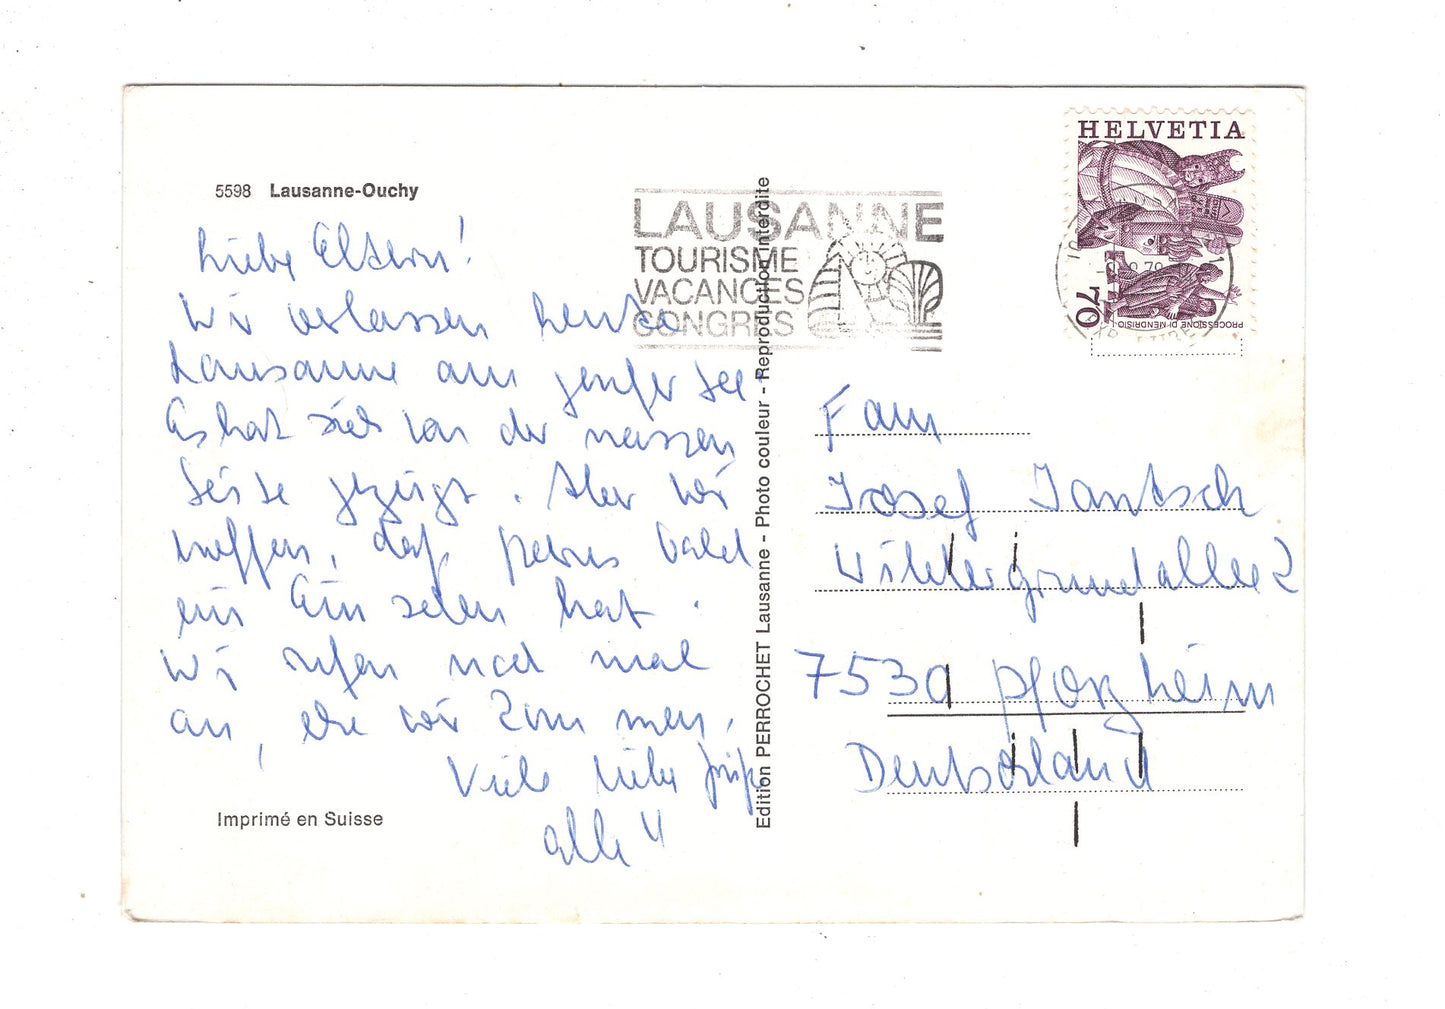 5598 Lausanne-Ouchy
Liebe Eltern!
Wir verlassen heute
Lausanne am genfer See
Es hat sich von der nassen
Seite gezeigt. Aber wir
hoffen, daß bald
ein Ein sehen hat.
Wir rufen noch mal
an, ehe wir kommen.
Viele liebe Grüße
alle 4
Imprimé en Suisse
Edition PERROCHET Lausanne - Photo couleur - Reproduction interdite
LAUSANNE
TOURISME
VACANCES
CONGRES
HELVETIA
70
PROCESSIONE DI MENDRISIO
Fam
Josef Jantsch
7530 Pforzheim
Deutschland